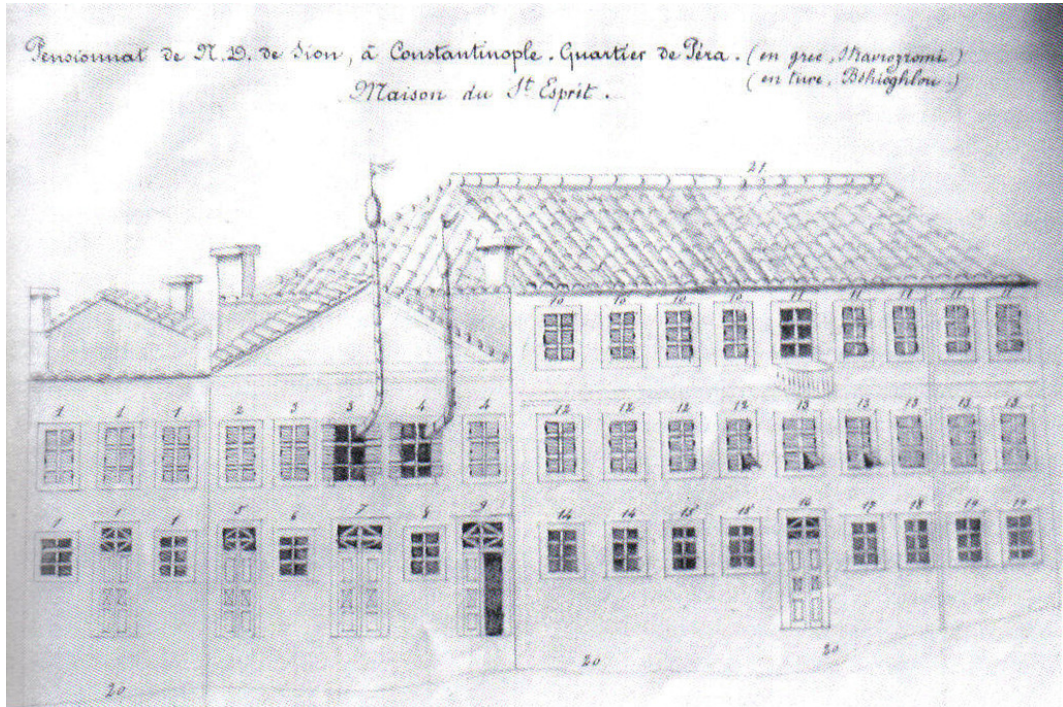 Pensionnat de N. D. de Sion, à Constantinople. Quartier de Péra. (en grec,
(en turc,
Maison du St Esprit.
21
10 10 10 10 11 11 11 11 11
1 1 1 2 3 3 4 4 12 12 12 12 13 13 13 13 13
1 1 1 5 6 7 8 9 14 14 15 15 16 17 18 19 19
20 20 20